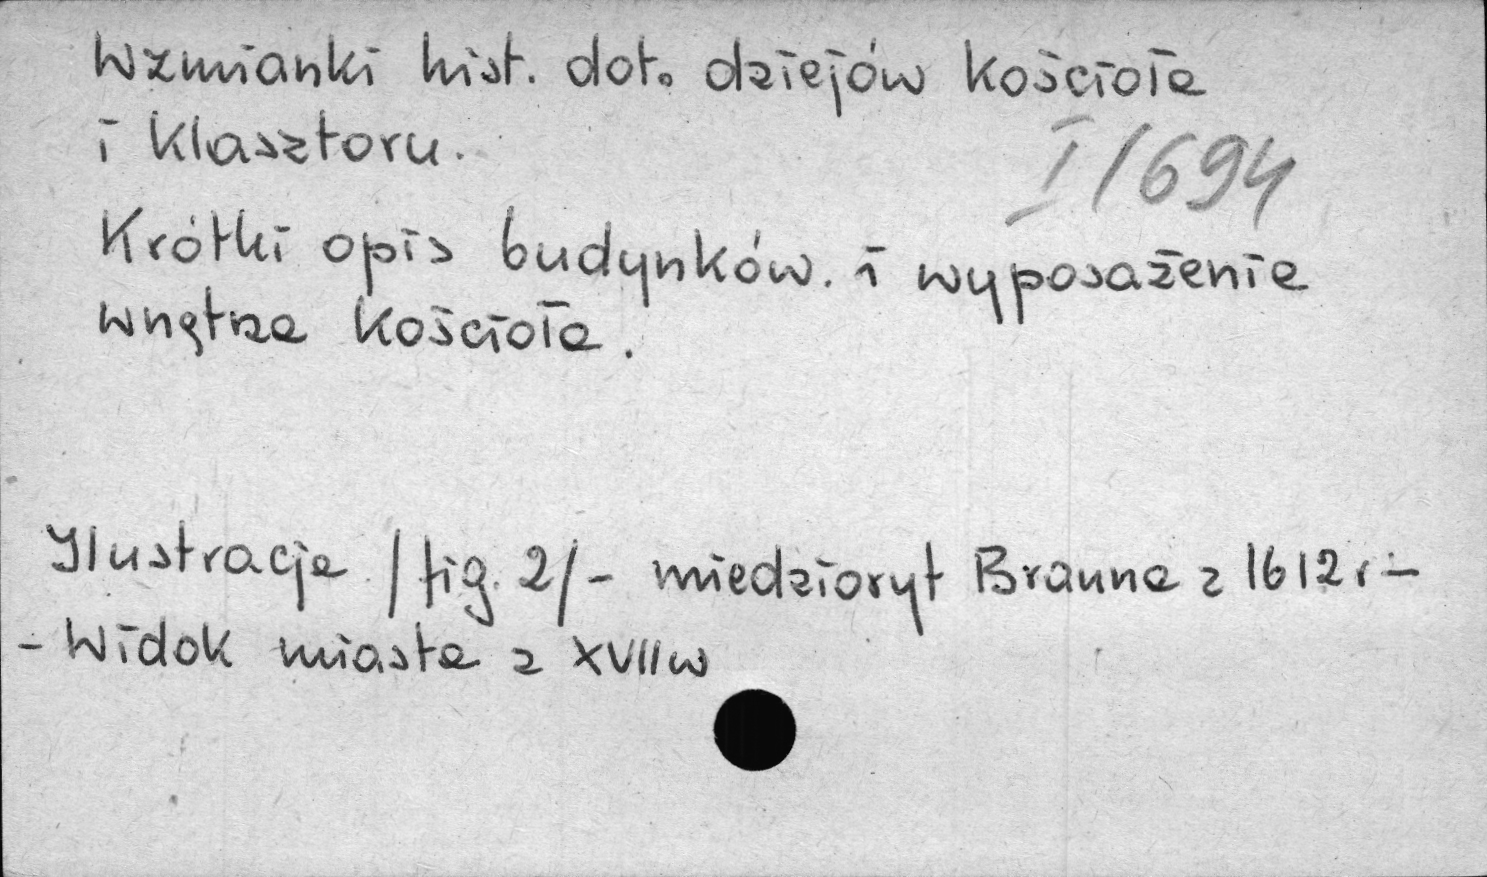 Wzmianki hist. dot. dziejów Kościoła
i Klasztoru.
I/694
Krótki opis budynków. i wyposażenie
wnętrza Kościoła.
Ilustracja /fig. 2/- miedzioryt Brauna z 1612 r -
- Widok miasta z XVII w